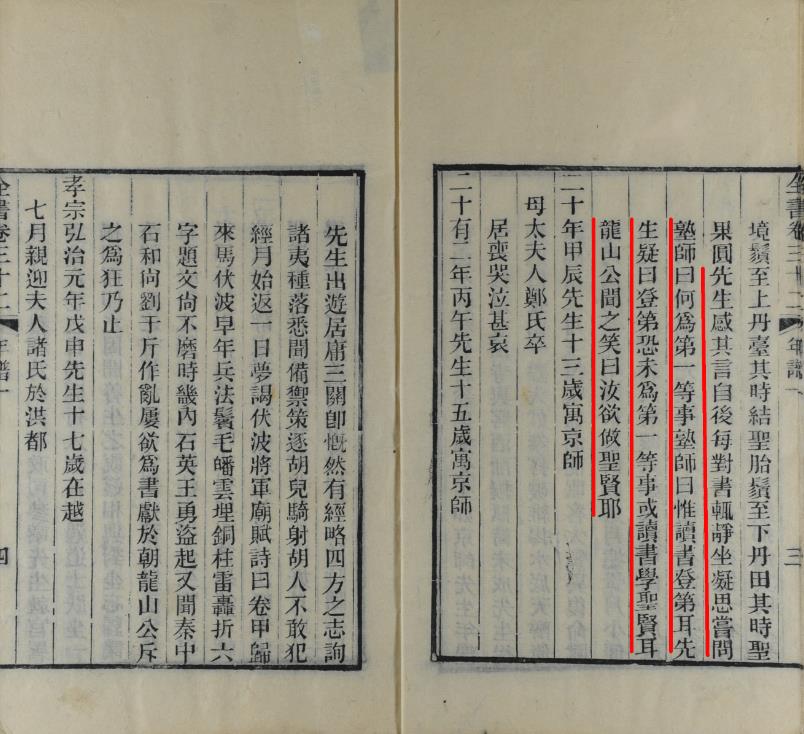 境鬚至上丹臺其時結聖胎鬚至下丹田其時聖
果圓先生感其言自後每對書輒靜坐凝思嘗問
塾師曰何爲第一等事塾師曰惟讀書登第耳先
生疑曰登第恐未爲第一等事或讀書學聖賢耳
龍山公聞之笑曰汝欲做聖賢耶
二十年甲辰先生十三歲寓京師
母太夫人鄭氏卒
居喪哭泣甚哀
二十有二年丙午先生十五歲寓京師
先生出遊居庸三關卽慨然有經略四方之志詢
諸夷種落悉聞備禦策逐胡兒騎射胡人不敢犯
經月始返一日夢謁伏波將軍廟賦詩曰卷甲歸
來馬伏波早年兵法鬢毛皤雲埋銅柱雷轟折六
字題文尙不磨時畿內石英王勇盜起又聞秦中
石和尙劉千斤作亂屢欲爲書獻於朝龍山公斥
之爲狂乃止
孝宗弘治元年戊申先生十七歲在越
七月親迎夫人諸氏於洪都
全書卷三十二 年譜一 三
全書卷三十二 年譜一 四